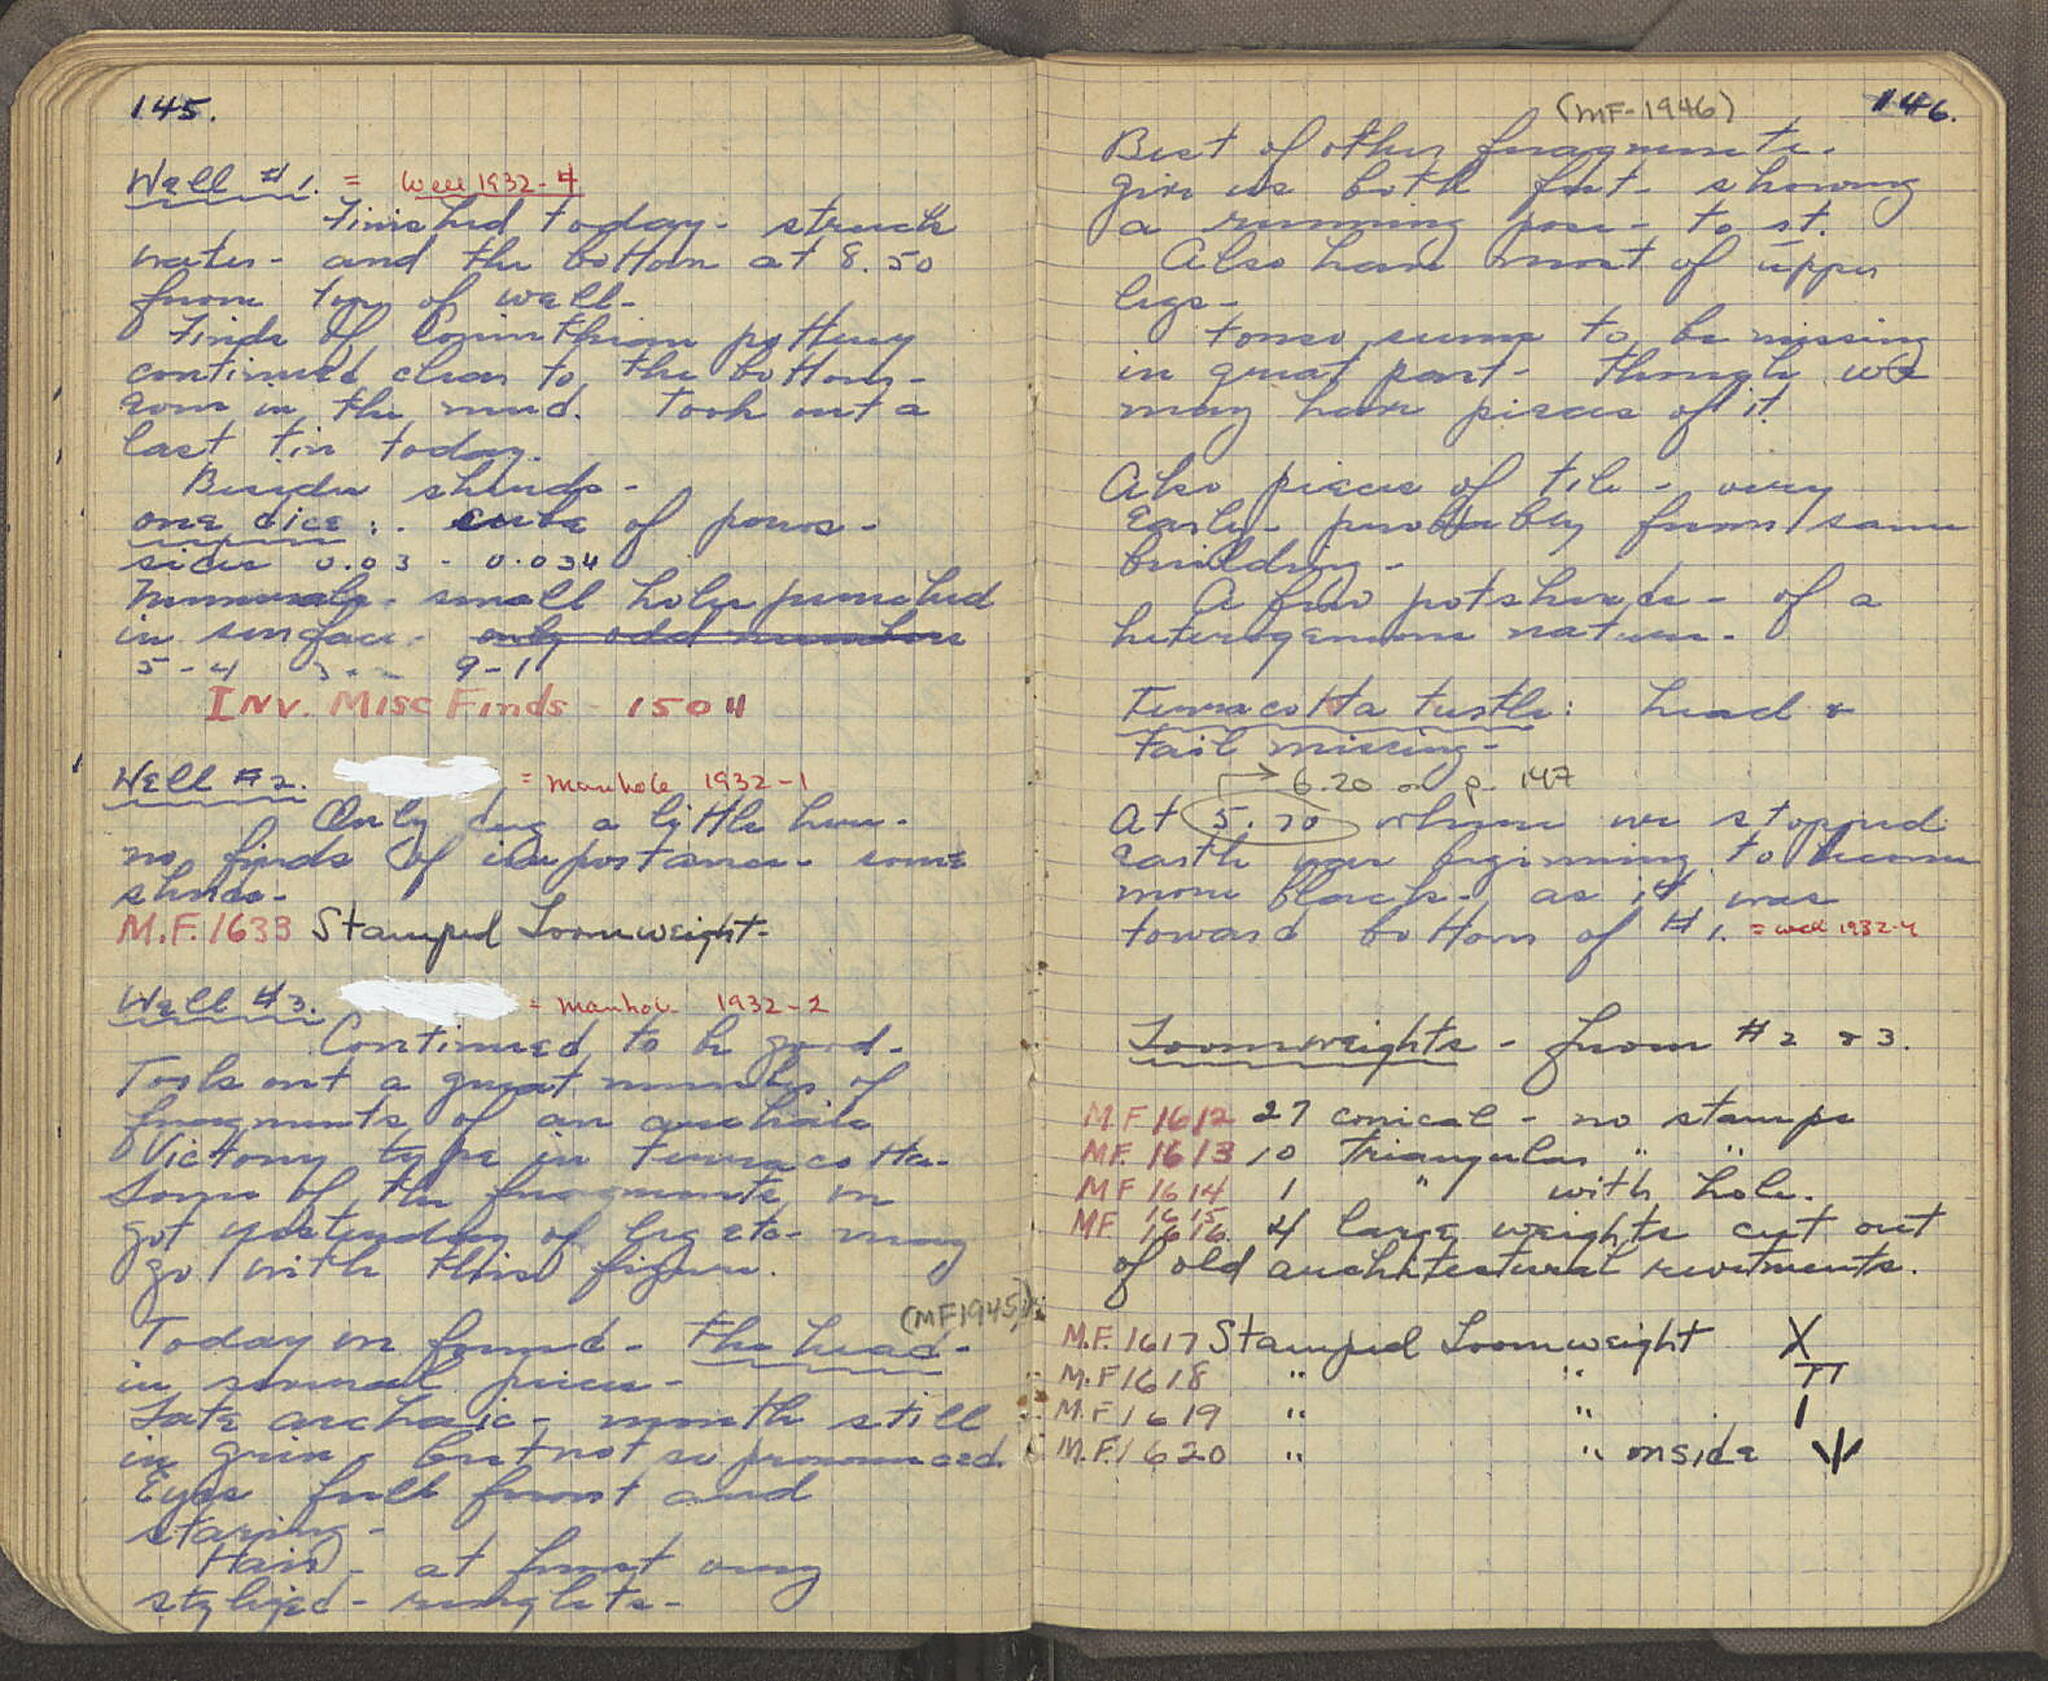 145.
Well #1. = Well 1932-4
Finished today- struck
water- and the bottom at 8.50
from top of well-
Finds of Corinthian pottery
continued clear to the bottom-
even in the mud. Took out a
last tin today.
Besides sherds-
one dice: . cube of poros-
sides 0.03 - 0.034
Numerals- small holes punched
in surface- only odd numbers
5-4 9-1
INV. MISC FINDS - 1504
Well #2. = manhole 1932-1
Only dug a little here-
no finds of importance- some
sherds-
M.F. 1633 Stamped Loomweight-
Well #3. = manhole 1932-2
Continued to be good-
Took out a great number of
fragments of an archaic
Victory type in terracotta-
Some of the fragments we
got yesterday of leg etc- may
go with this figure.
(MF1945)
Today we found- the head-
in several pieces-
Late archaic- mouth still
in grin- but not so pronounced.
Eyes full front and
staring-
Hair- at front very
stylized- ringlets-
146.
(MF-1946)
Best of other fragments-
give us both feet- showing
a running pose- to st.
Also have most of upper
legs-
torso seems to be missing
in great part- though we
may have pieces of it
Also pieces of tile- very
early- probably from same
building-
A few potsherds- of a
heterogeneous nature-
Terracotta turtle: head &
tail missing-
→ 6.20 on p. 147
At 5.70 where we stopped
earth was beginning to become
more black- as it was
toward bottom of #1. = well 1932-4
Loomweights- from #2 & 3.
M.F 1612 27 conical - no stamps
MF. 1613 10 Triangular " "
MF 1614 1 " with hole.
MF. 1615
1616 4 large weights cut out
of old architectural revetments.
M.F. 1617 Stamped Loomweight X
M.F 1618 " " π
M.F 1619 " " I
M.F. 1620 " " on side Ψ